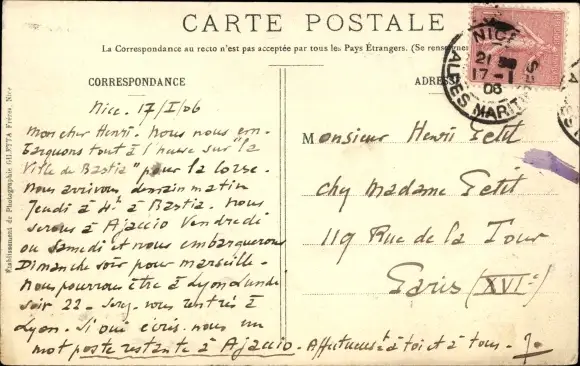 CARTE POSTALE
La Correspondance au recto n'est pas acceptée par tous les Pays Étrangers. (Se renseigner
CORRESPONDANCE
ADRES
NICE
21
17-1
06
ALPES MARIT
Etablissement de Photographie GILETTA Frères, Nice
Nice. 17/I/06
Mon cher Henri. Nous nous em-
barquons tout à l'heure sur "la
Ville de Bastia" pour la Corse.
Nous arrivons demain matin
Jeudi à 4h à Bastia. Nous
serons à Ajaccio Vendredi
ou Samedi et nous embarquerons
Dimanche soir pour Marseille.
Nous pourrons être à Lyon Lundi
soir 22. Serez-vous rentrés à
Lyon. Si oui écris-nous un
mot poste restante à Ajaccio. Affectueust à toi et à tous.
Monsieur Henri Petit
chez Madame Petit
119 Rue de la Tour
Paris (XVIe)